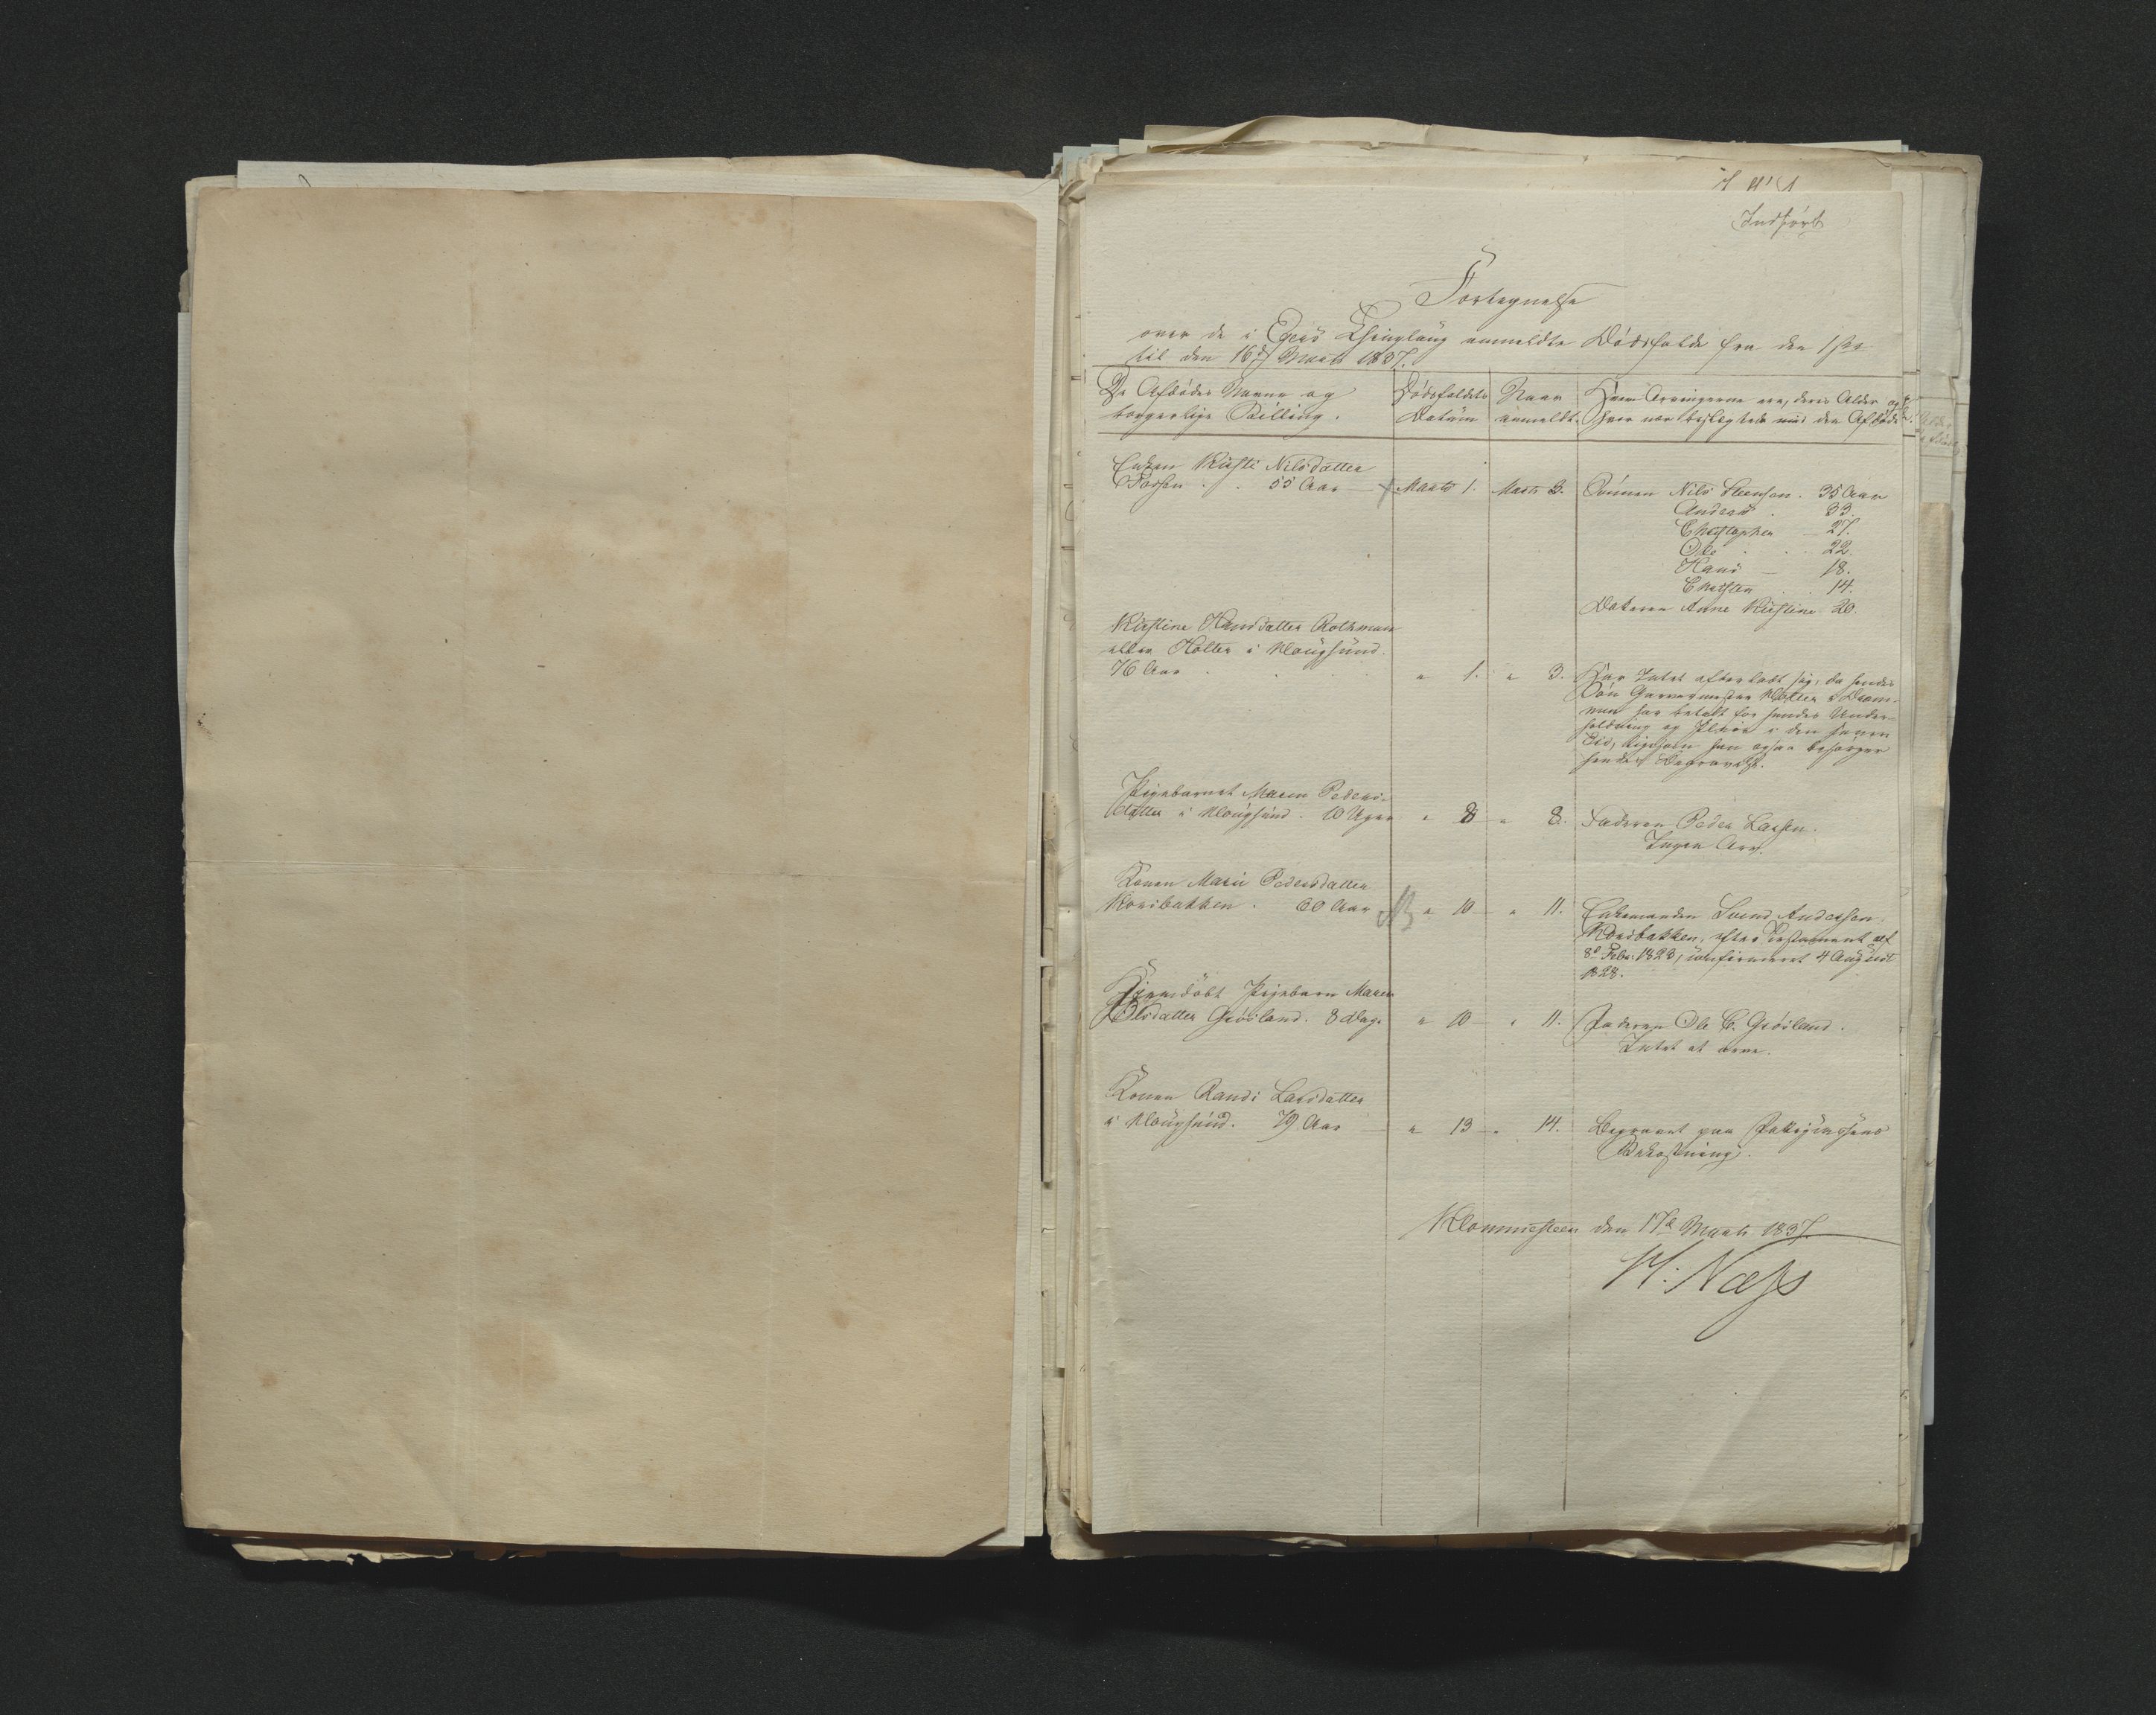 Indført
Fortegnelse
over de i Egers Thinglaug anmeldte Dødsfalde fra den 1ste
til den 16de Marts 1837.
De Afdødes Navne og
borgerlige Stilling.
Dødsfaldets
Datum
Naar
anmeldt.
Hvem Arvingerne ere, deres Alder og
hvor nær beslægtede med den Afdøde
Enken Kirsti Nilsdatter
55 Aar Marts 1. Marts 3. Sønnen Nils Steensen. 35 Aar
Anders . 33.
Christopher — 27.
Ole . . 22.
Hans — 18.
Christen . . 14.
Datteren Anne Kirstine 20.
Kirstine Hansdatter Rothman
eller Holter i Hougsund.
76 Aar . . . . " 1. " 3. Har Intet efterladt sig, da hendes
Søn Garvermester Holter i Dram-
men har betalt for hendes Under-
holdning og Pleie i den senere
Tid, ligesom han ogsaa besørger
hendes Begravelse.
Pigebarnet Maren Peders-
datter i Hougsund. 10 Uger " 8 " 8. Faderen Peder Larsen.
Ingen Arv.
Konen Marie Pedersdatter
Horsbakken . 60 Aar " 10 — " 11. Enkemanden Svend Andersen
Horsbakken, efter Testament af
8de Febr: 1823, confirmeret 4 August
1828.
Hjemdøbt Pigebarn Maren
Olsdatter Grøsland. 8 Dage " 10 — " 11. Faderen Ole C. Grøsland.
Intet at arve.
Konen Randi Larsdatter
i Hougsund. 79 Aar — " 13 — " 14. Begravet paa Fattigcassens
Bekostning.
den 17de Marts 1837.
H: Næss